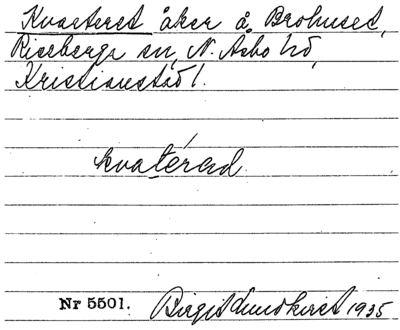 Kvarteret åker å Brohuset,
Riseberga sn, N. Åsbo hd,
Kristianstad l.
kvatéred
Nr 5501. Birgit Lundkvist 1935